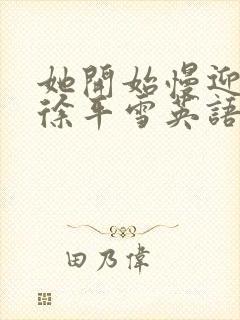 她開始慢迎
徐平雪英語
田乃偉